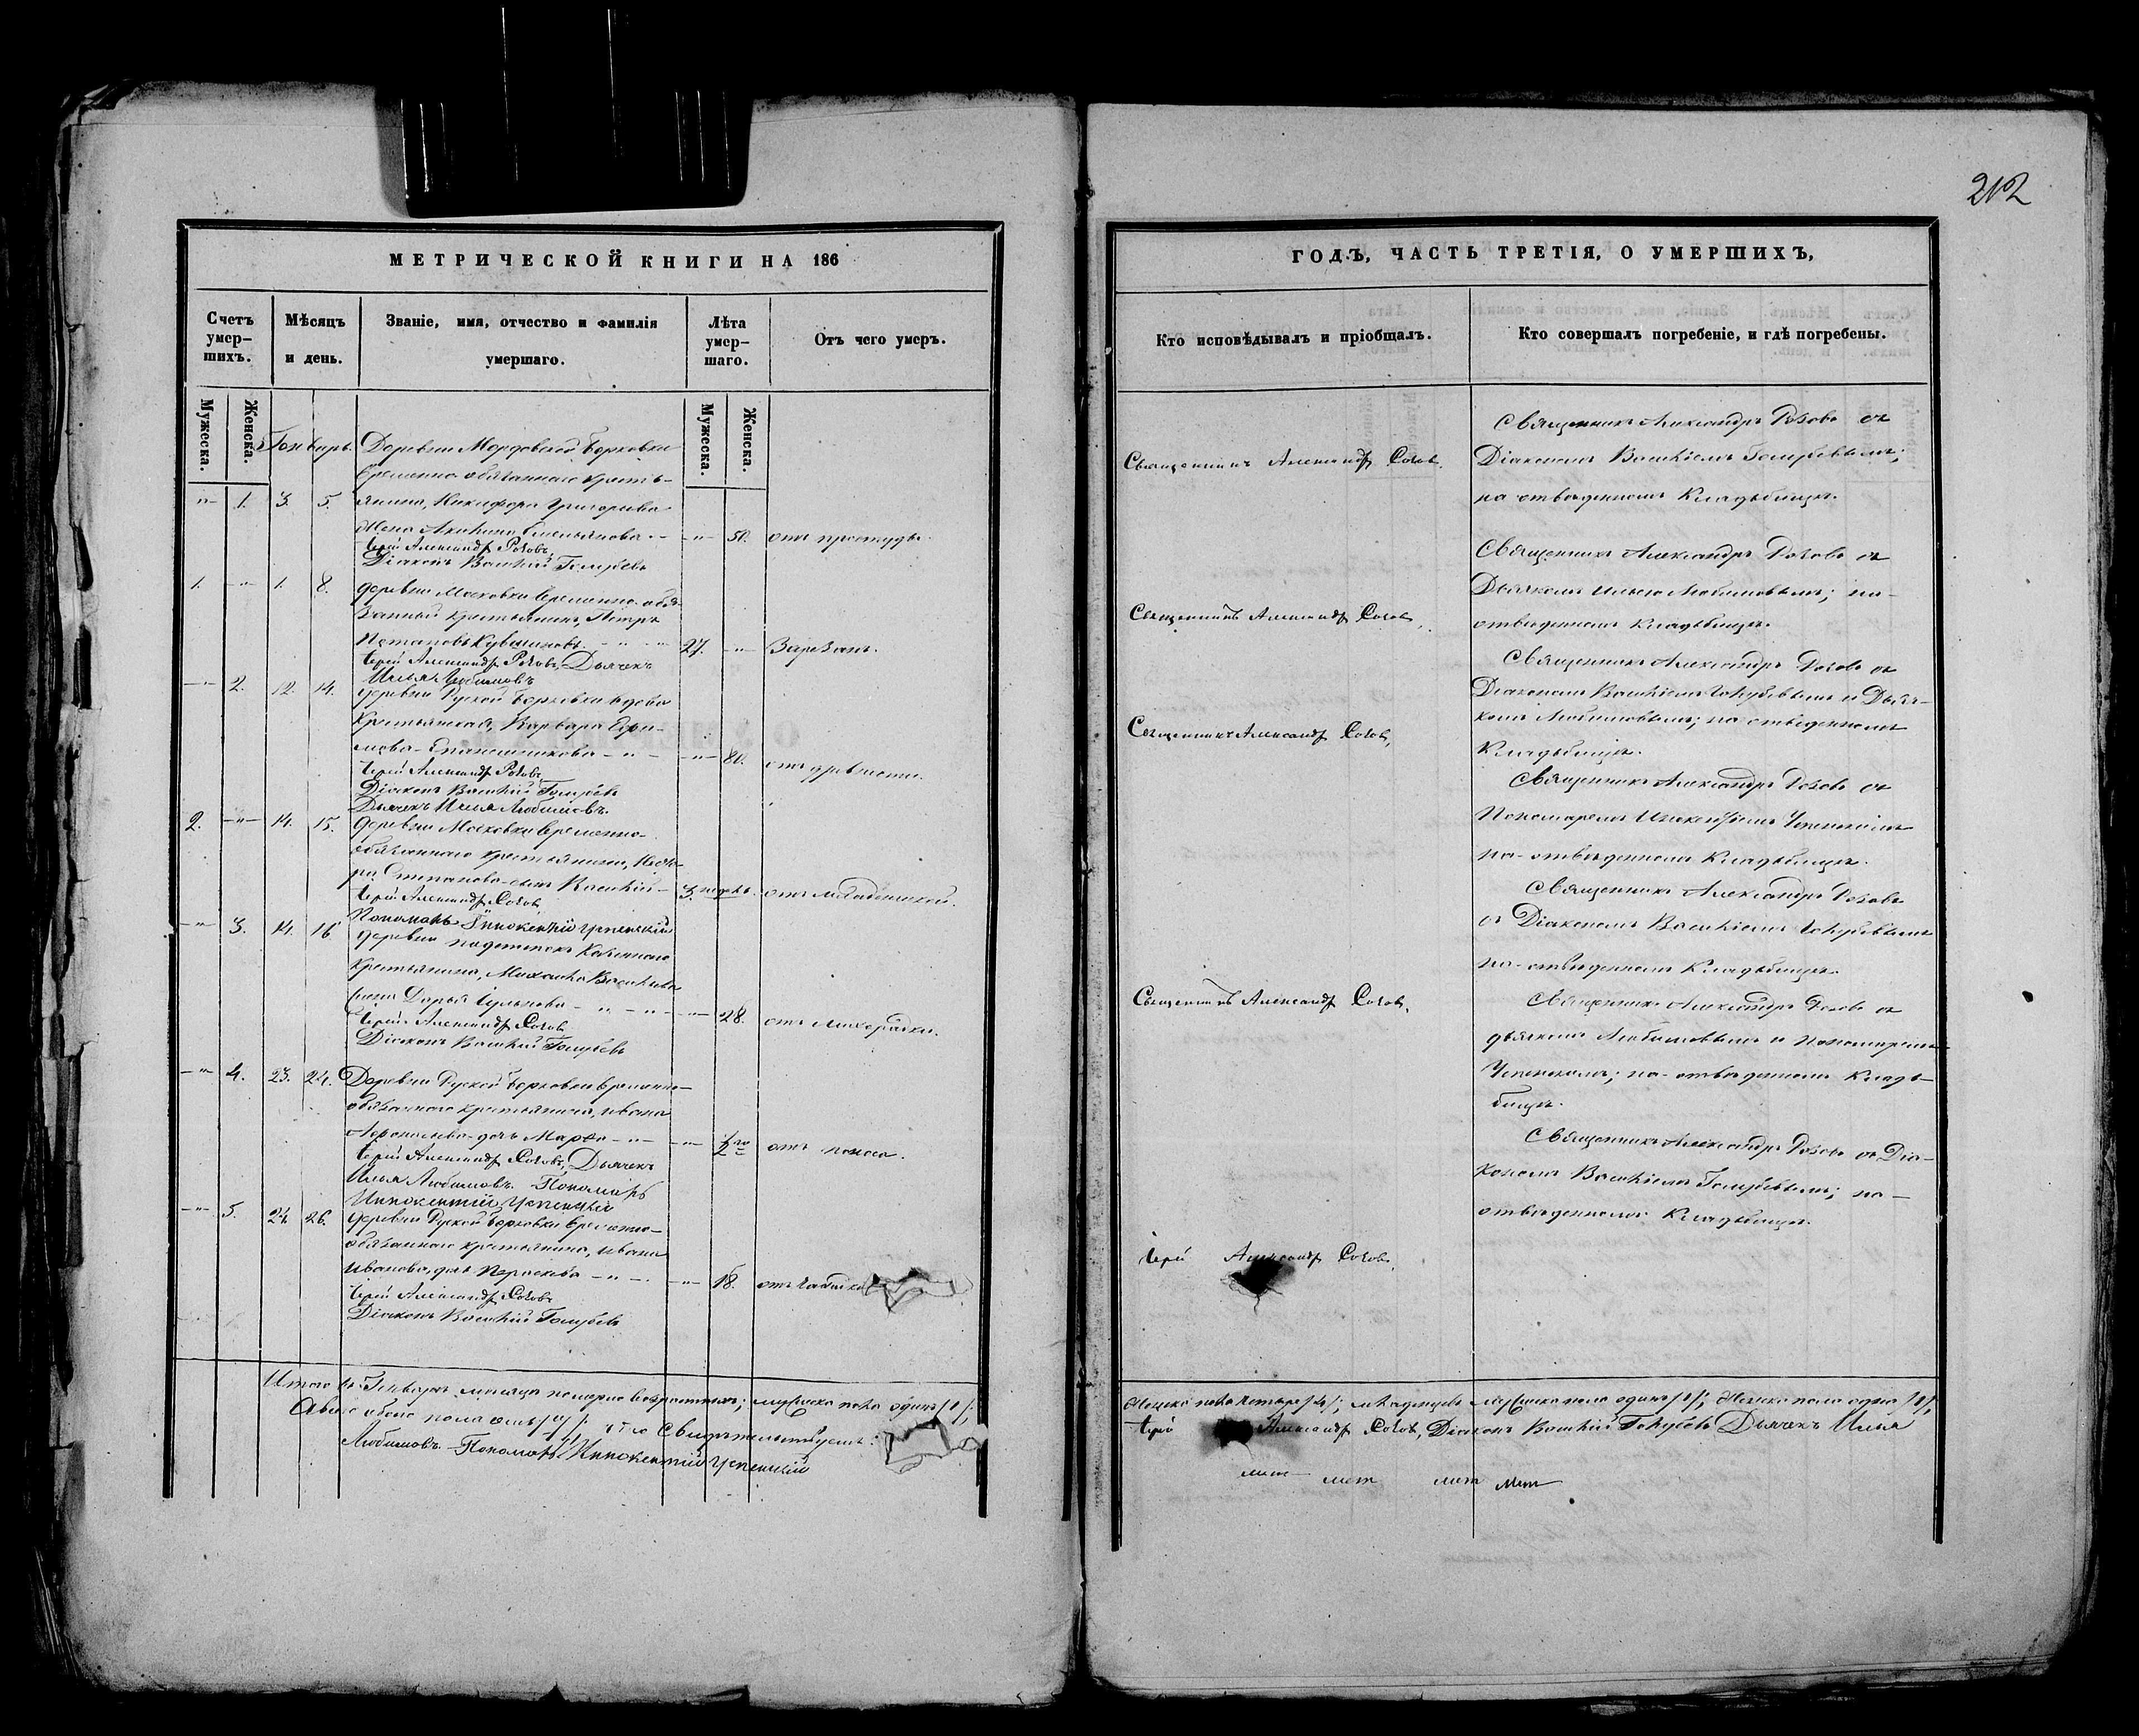 212
МЕТРИЧЕСКОЙ КНИГИ НА 186
Счетъ умер–шихъ.
Мѣсяцъ и день.
Званіе, имя, отчество и фамилія умершаго.
Лѣта умер–шаго.
Отъ чего умеръ.
Мужеска.
Женска.
Мужеска.
Женска.
Генварь.
Деревни Мордовской Борковки
временно обязаннаго кресть–
-"- 1. 3. 5. янина, Никифора Григорьева
жена Акилина Емельянова - -"- 50. отъ простуды.
Іерей Александръ Роговъ,
Діаконъ Василій Голубевъ
1. -"- 1. 8. деревни Московки временно обя–
занный крестьянинъ, Петръ
Потаповъ Кувшиновъ. 27. -"- Зарезанъ.
Іерей Александръ Роговъ, Дьячекъ
Илья Любимовъ
-"- 2. 12. 14. деревни Руской Борковки вдова
крестьянская, Варвара Ефи–
мова -"- -"- 80. отъ древности.
Іерей Александръ Роговъ,
Діаконъ Василій Голубевъ
Дьячекъ Илья Любимовъ.
2. -"- 14. 15. деревни Московки временно–
обязаннаго крестьянина,
Степанова сынъ Василій - 3. недѣль. отъ младенческой.
Іерей Александръ Роговъ
Пономарь Іннокентій Успенскій
-"- 3. 14. 16. деревни казеннаго
крестьянина, Михаила Васильева
жена Дарья -"- -"- 28. отъ лихорадки.
Іерей Александръ Роговъ
Діаконъ Василій Голубевъ
-"- 4. 23. 24. Деревни Руской Борковки временно–
обязаннаго крестьянина, Ивана
дочь Марѳа -"- -"- отъ поноса.
Іерей Александръ Роговъ, Дьячекъ
Илья Любимовъ. Пономарь
Иннокентій Успенскій
-"- 5. 24. 26. деревни Руской Борковки временно–
обязаннаго крестьянина, Ивана
Иванова, дочь Параскева -"- -"- 18. отъ
Іерей Александръ Роговъ
Діаконъ Василій Голубевъ
Итого въ Генварѣ мѣсяцѣ померло возрастныхъ; мужеска пола одинъ /1/;
А всего обоего пола семь /7/; въ чемъ Свидѣтельствуемъ:
Любимовъ. Пономарь Иннокентій Успенскій
ГОДЪ, ЧАСТЬ ТРЕТІЯ, О УМЕРШИХЪ,
Кто исповѣдывалъ и пріобщалъ.
Кто совершалъ погребеніе, и гдѣ погребены.
Священникъ Александръ Роговъ.
Священникъ Александръ Роговъ съ
Діакономъ Василіемъ Голубевымъ;
на отведенномъ кладбищѣ.
Священникъ Александръ Роговъ,
Священникъ Александръ Роговъ съ
Дьячкомъ Ильею Любимовымъ; на–
отведенномъ кладбищѣ.
Священникъ Александръ Роговъ,
Священникъ Александръ Роговъ съ
Діакономъ Василіемъ Голубевымъ и Дьяч–
комъ Любимовымъ; на отведенномъ
Кладбищѣ.
Священникъ Александръ Роговъ съ
Пономаремъ Инокентіемъ Успенскимъ
на–отведенномъ кладбищѣ.
Священникъ Александръ Роговъ,
Священникъ Александръ Роговъ
съ Діакономъ Василіемъ Голубевымъ
на–отведенномъ кладбищѣ.
Священникъ Александръ Роговъ съ
дьячкомъ Любимовымъ и пономаремъ
Успенскимъ; на–отведенномъ клад–
бищѣ.
Іерей Александръ Роговъ.
Священникъ Александръ Роговъ съ Діа–
кономъ Василіемъ Голубевымъ; на–
отведенномъ кладбищѣ.
Женска пола четыре /4/; младенцевъ мужеска пола одинъ /1/; Женска пола одна /1/;
Іерей Александръ Роговъ, Діаконъ Василій Голубевъ Дьячекъ Илья